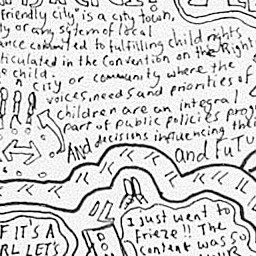 friendly city" is a city, town,
or any system of local
committed to fulfilling child rights
articulated in the Convention on the Right
child.
A city or community where the
voices, needs and priorities of
children are an integral
part of public policies prog
AND decisions influencing thei
and FUTU
IF IT'S A
RL LET'S
I just went to
Frieze!! The
content was so